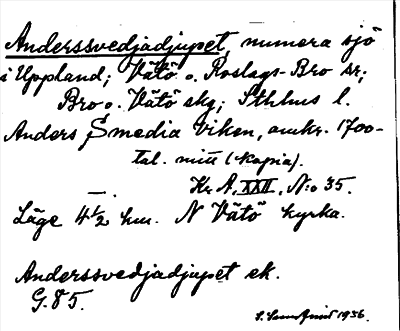 Anderssvedjadjupet, numera sjö
i Uppland; Vätö o. Roslags-Bro sr;
Bro o. Vätö skg; Sthlms l.
Anders Smedia Viken, omkr. 1700-
tal. mitt (kopia).
Kr. A, XXII, N:o 35.
Läge 4 1/2 km. N Vätö kyrka.
Anderssvedjadjupet ek.
G. 85.
1936.